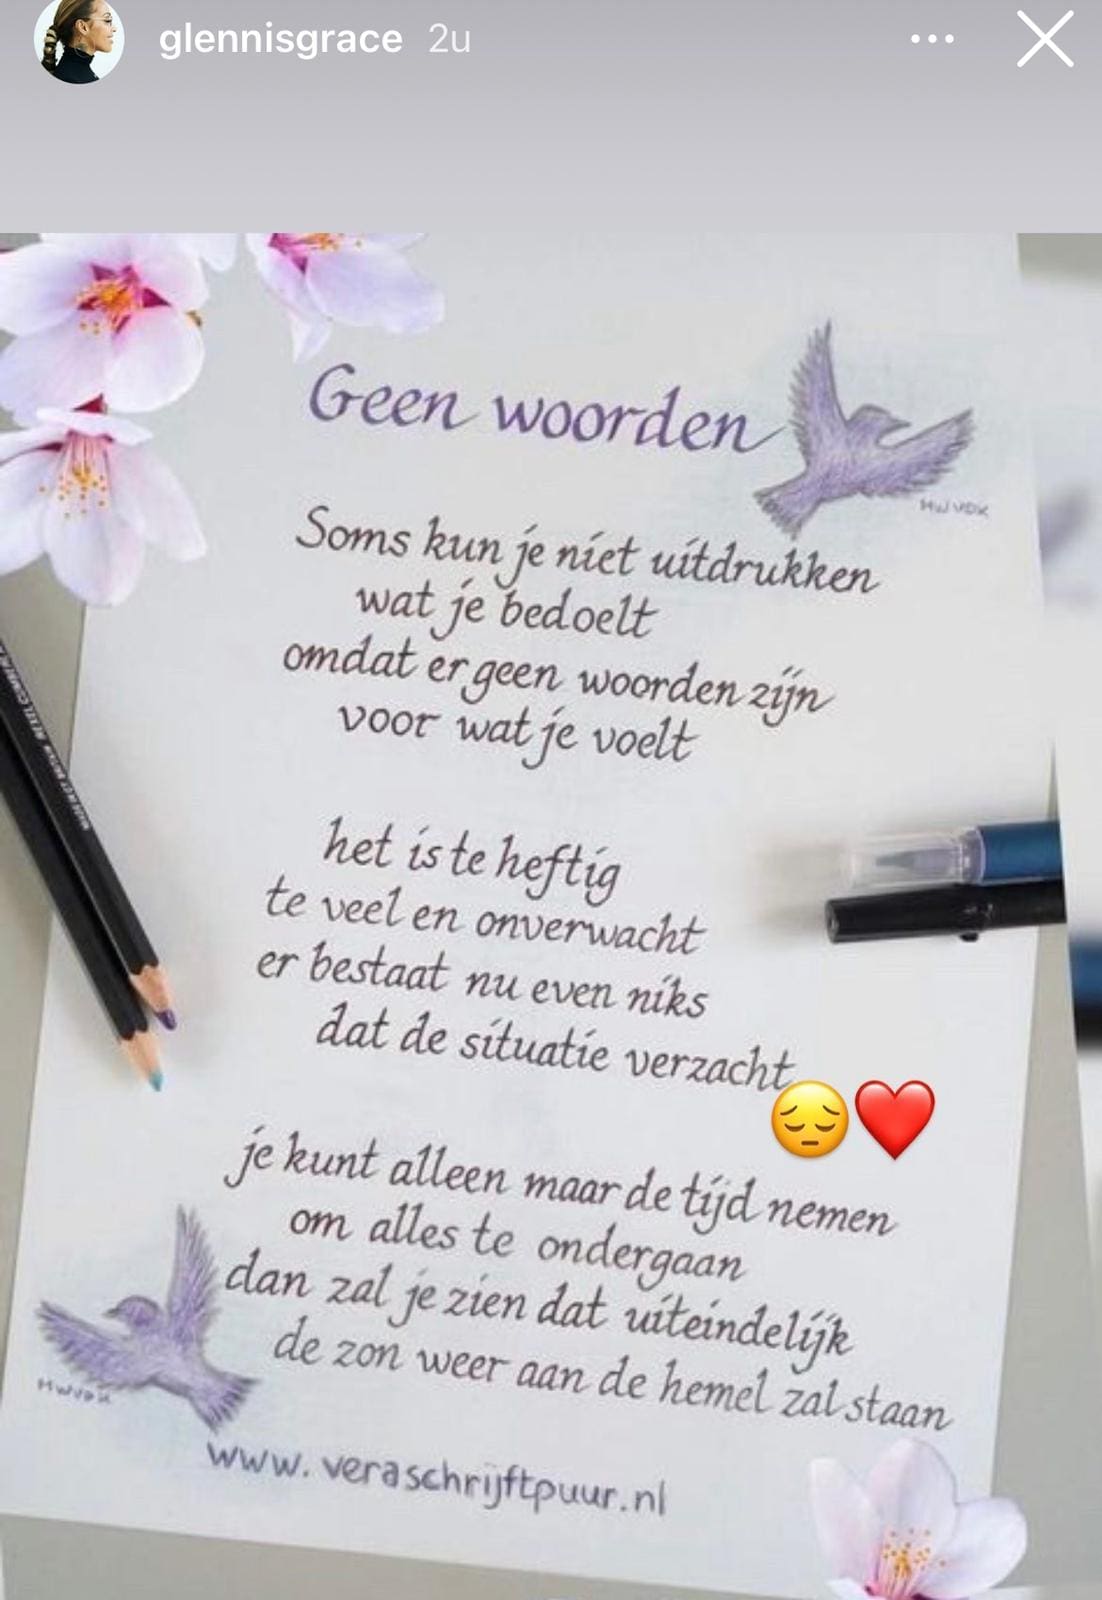 glennisgrace 2u
Geen woorden
HWVDK
Soms kun je niet uitdrukken
wat je bedoelt
omdat er geen woorden zijn
voor wat je voelt
het is te heftig
te veel en onverwacht
er bestaat nu even niks
dat de situatie verzacht
je kunt alleen maar de tijd nemen
om alles te ondergaan
dan zal je zien dat uiteindelijk
de zon weer aan de hemel zal staan
HWVDK
www.veraschrijftpuur.nl